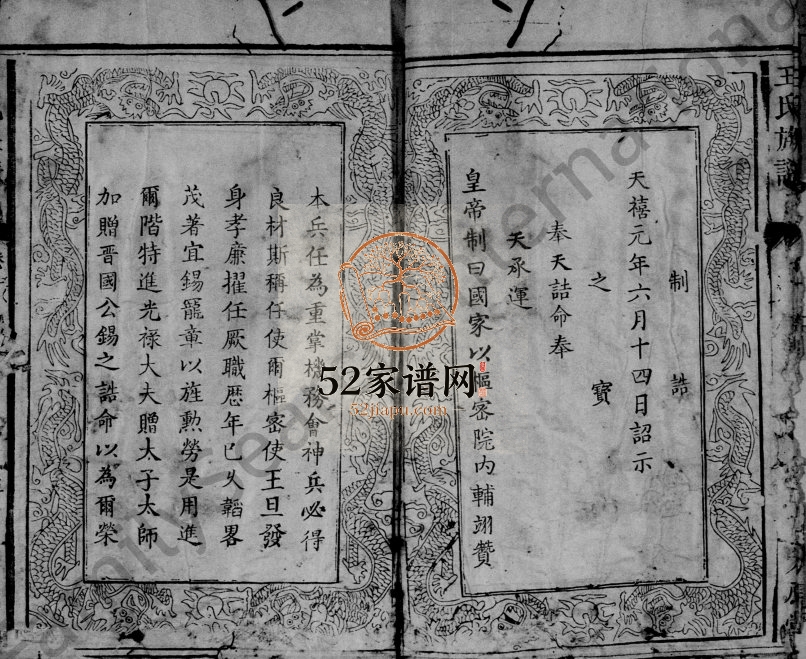 王氏族譜
制誥
天禧元年六月十四日詔示
之寳
奉天誥命奉
天承運
皇帝制曰國家以樞密院内輔翊贊
本兵任為重掌機務會神兵必得
良材斯稱任使爾樞密使王旦發
身孝廉擢任厥職歴年已久韜畧
茂著宜錫寵章以旌勲勞是用進
爾階特進光禄大夫贈太子太師
加贈晋國公錫之誥命以為爾榮
52家谱网
52jiapu.com